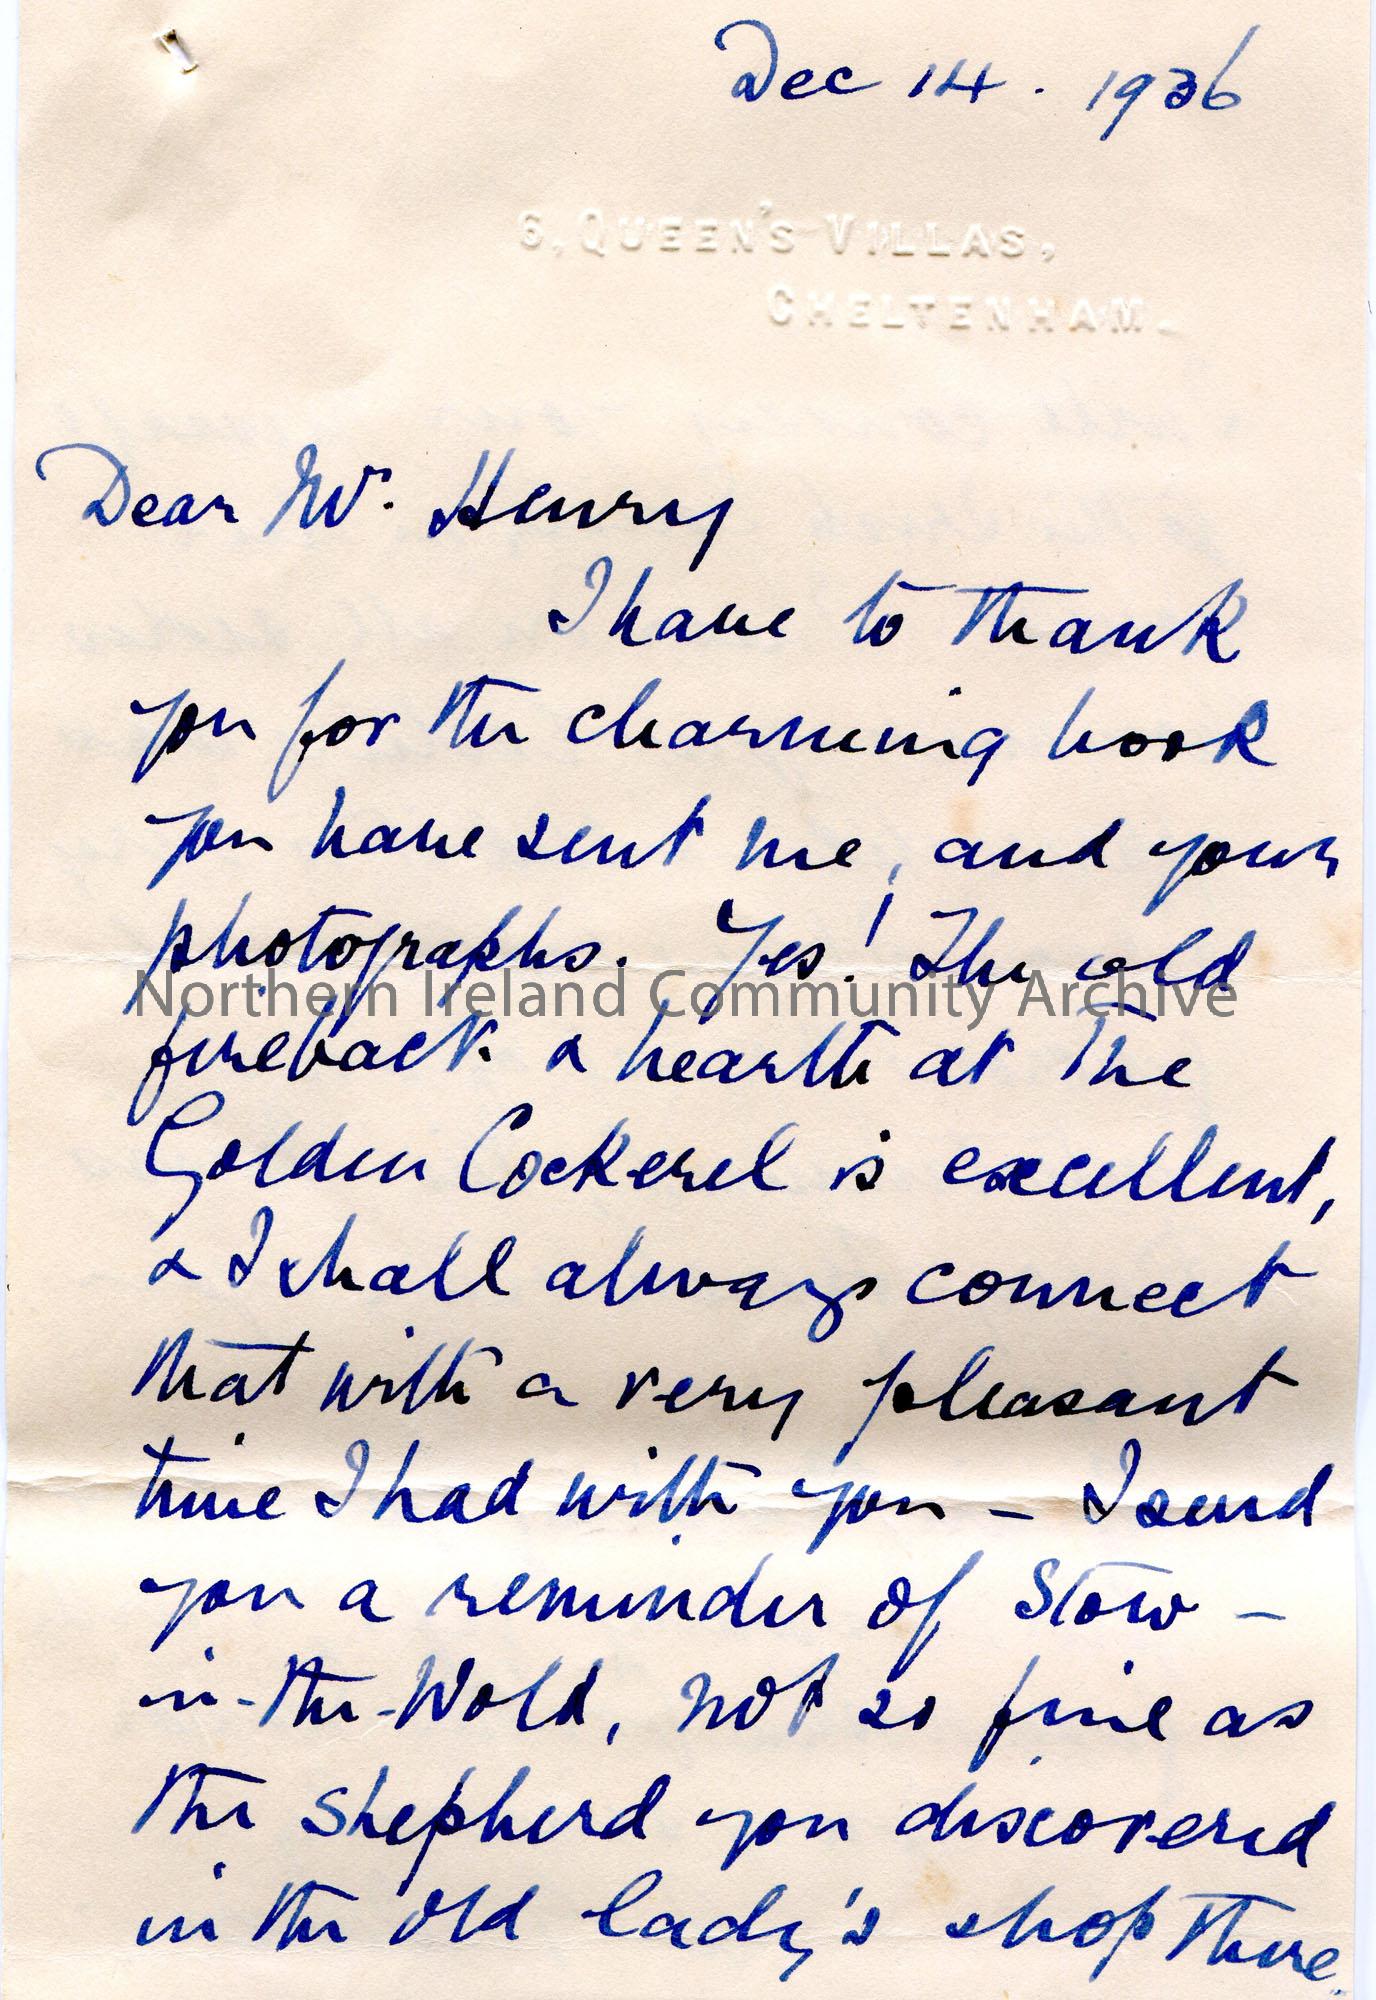 Dec 14. 1936
6, QUEEN'S VILLAS,
CHELTENHAM.
Dear Mr. Henry
I have to thank
you for the charming book
you have sent me, and your
photographs. Yes! The old
Northern Ireland Community Archive
fireback & hearth at The
Golden Cockerel is excellent,
& I shall always connect
that with a very pleasant
time I had with you – I send
you a reminder of Stow -
in-the-Wold, not so fine as
the shepherd you discovered
in the old lady's shop there.